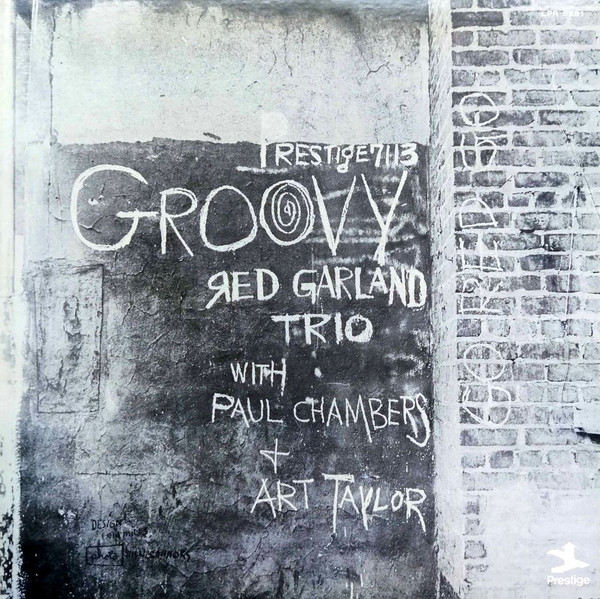 PRESTIGE 7113
GROOVY
RED GARLAND
TRIO
WITH
PAUL CHAMBERS
+
ART TAYLOR
GO RED GO
DESIGN
photo
Prestige